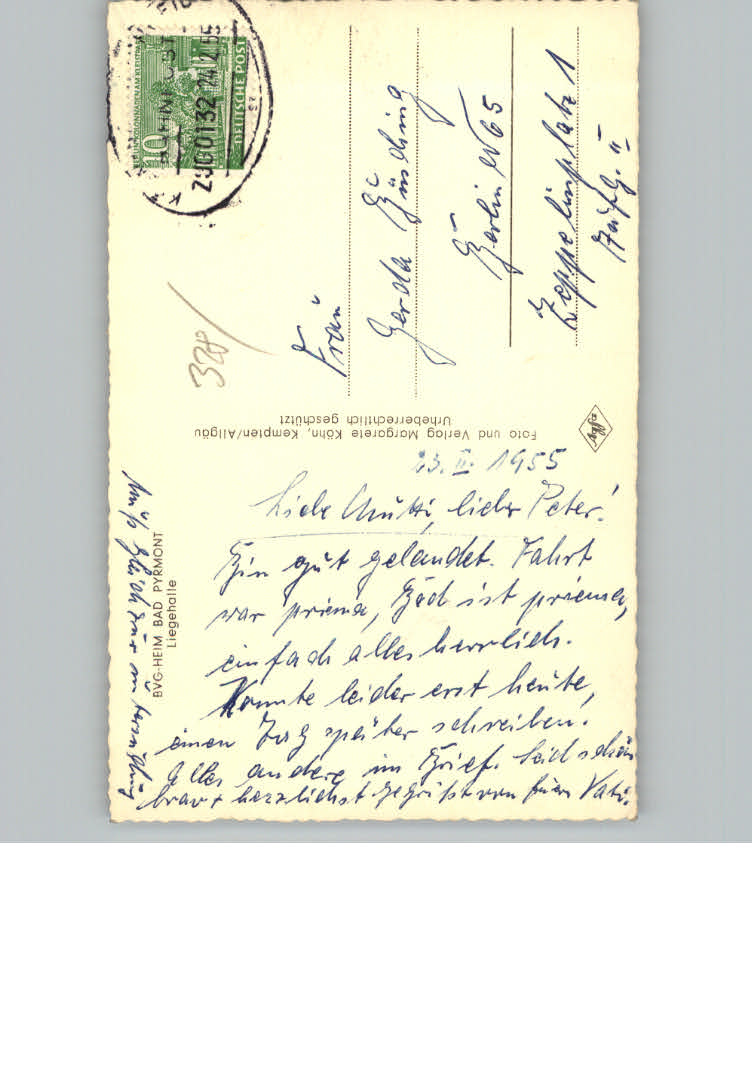 23. II. 1955
Liebe Mutti, lieber Peter!
Bin gut gelandet. Fahrt
war priema, Bad ist priema,
einfach alles herrlich.
Konnte leider erst heute,
einen Tag später schreiben.
Alles andere im Brief. Seid schön
brav + herzlichst gegrüßt von Euren Vati.
BVG-HEIM BAD PYRMONT
Liegehalle
Foto und Verlag Margarete Köhn, Kempten/Allgäu
Urheberrechtlich geschützt
Agfa
Frau
Gerda Büsching
Berlin N 65
Zeppelinplatz 1
Aufg. II
328/
10
DEUTSCHE POST
ZUG 0132 24.2.55